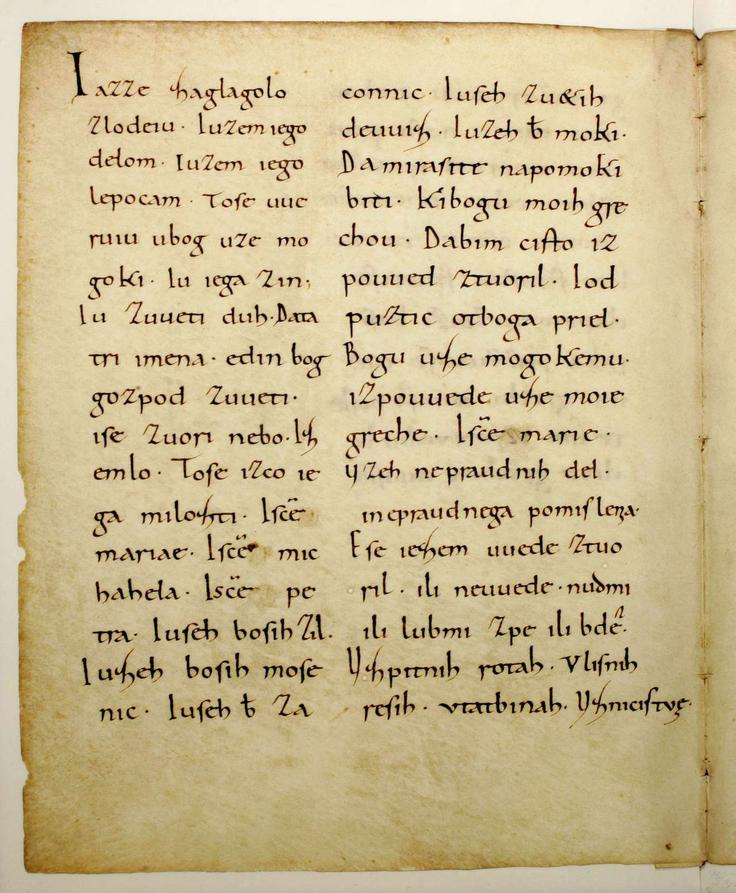 Iazze zaglagolo
zlodeiu · Iuzem iego
delom · Iuzem iego
lepocam · Tose uue
ruiu ubog uze mo
goki · Iu iega zin ·
Iu zuueti duh · Data
tri imena · edin bog
gozpod zuueti ·
ise zuori nebo · Iz
emlo · Tose izco ie
ga milozti · Isc̄e
mariae · Isc̄e mic
hahela · Isc̄e pe
tra · Iuseh bosih zil ·
Iuzeh bosih mose
nic · Iuseh b̄ za
connic · Iuseh zuetih
deuuiz · Iuzeh b̄ moki ·
Da mirasite napomoki
biti · Kibogu moih gre
chou · Dabim cisto iz
pouued ztuoril · Iod
puztic otboga priel ·
Bogu uze mogokemu ·
izpouuede uze moie
greche · Isc̄e marie ·
Uzeh nepraudnih del ·
inepraudnega pomislena ·
Ese iezem uuede ztuo
ril · ili neuuede · nudmi
ili lubmi zpe ili bde ·
Uzpitnih rotah · Vlisnih
resih · vtatbinah · Uznicistve ·